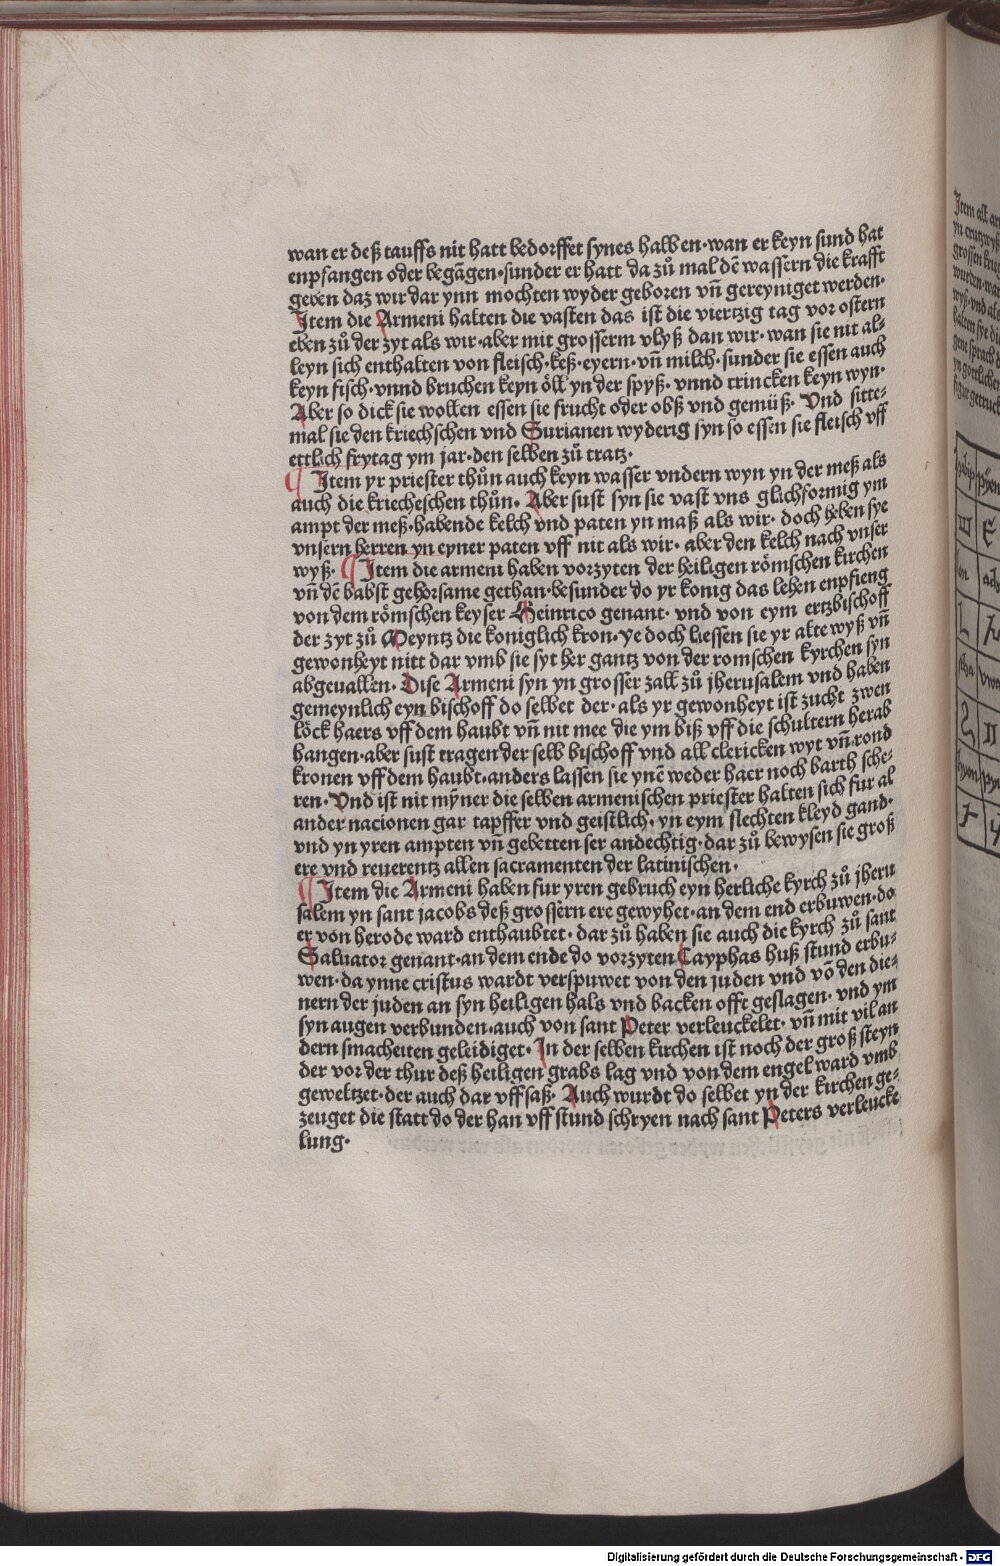 wan er deß tauffs nit hatt bedorffet synes halben·wan er keyn sund hat
enpfangen oder begāgen·sunder er hatt da zů mal dē wassern die krafft
geben daz wir dar ynn mochten wyder geboren vñ gereyniget werden·
Item die Armeni halten die vasten das ist die viertzig tag vor ostern
eben zů der zyt als wir·aber mit grosserm vlyß dan wir·wan sie nit al⸗
leyn sich enthalten von fleisch·keß·eyern·vñ milch·sunder sie essen auch
keyn fisch·vnnd bruchen keyn öll yn der spyß·vnnd trincken keyn wyn·
Aber so dick sie wollen essen sie frucht oder obß vnd gemüß· Vnd sitte⸗
mal sie den kriechschen vnd Surianen wyderig syn so essen sie fleisch vff
ettlich frytag ym jar·den selben zů tratz·
¶ Item yr priester thůn auch keyn wasser vndern wyn yn der meß als
auch die kriecheschen thůn· Aber sust syn sie vast vns glichformig ym
ampt der meß·habende kelch vnd paten yn maß als wir· doch heben sye
vnsern herren yn eyner paten vff nit als wir· aber den kelch nach vnser
wyß· ¶ Item die armeni haben vorzyten der heiligen römschen kirchen
vñ dē babst gehorsame gethan·besunder do yr konig das lehen enpfieng
von dem römschen keyser Heinrico genant· vnd von eym ertzbischoff
der zyt zů Meyntz die koniglich kron·ye doch liessen sie yr alte wyß vñ
gewonheyt nitt dar vmb sie syt her gantz von der romschen kyrchen syn
abgevallen· Dise Armeni syn yn grosser zall zů jherusalem vnd haben
gemeynlich eyn bischoff do selbet der·als yr gewonheyt ist zucht zwen
löck haers vff dem haubt vñ nit mee die ym biß vff die schultern herab
hangen·aber sust tragen der selb bischoff vnd all clericken wyt vñ rond
kronen vff dem haubt·anders lassen sie ynē weder haer noch barth sche⸗
ren· Vnd ist nit mÿner die selben armenischen priester halten sich fur al
ander nacionen gar tapffer vnd geistlich· yn eym slechten kleyd gand·
vnd yn yren ampten vñ gebetten ser andechtig·dar zů bewysen sie groß
ere vnd reuerentz allen sacramenten der latinischen·
¶ Item die Armeni haben fur yren gebruch eyn herliche kyrch zů jheru
salem yn sant jacobs deß grossern ere gewyhet·an dem end erbuwen·do
er von herode ward enthaubtet· dar zů haben sie auch die kyrch zů sant
Saluator genant·an dem ende do vorzyten Cayphas huß stund erbu⸗
wen·da ynne cristus wardt verspuwet von den juden vnd vō den die⸗
nern der juden an syn heiligen hals vnd backen offt geslagen· vnd ym
syn augen verbunden·auch von sant Peter verleuckelet· vñ mit vil an
dern smacheiten geleidiget· In der selben kirchen ist noch der groß steyn
der vor der thur deß heiligen grabs lag vnd von dem engel ward vmb
geweltzet·der auch dar vff saß· Auch wurdt do selbet yn der kirchen ge⸗
zeuget die statt do der han vff stund schryen nach sant Peters verleucke
lung·
Digitalisierung gefördert durch die Deutsche Forschungsgemeinschaft - DFG